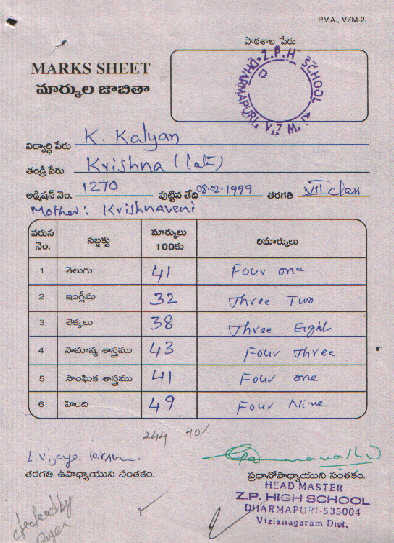 P.M.A., VZM-2
పాఠశాల పేరు
Z.P.H. SCHOOL
DHARMAPURI, VZM
MARKS SHEET
మార్కుల జాబితా
విద్యార్థి పేరు K. Kalyan
తండ్రి పేరు Krishna (late)
అడ్మిషన్ నెం. 1270 పుట్టిన తేది 08-02-1999 తరగతి VII class
Mother: Krishnaveni
వరుస నెం. సబ్జక్టు మార్కులు 100కు రిమార్కులు
1 తెలుగు 41 Four one
2 ఇంగ్లీషు 32 Three Two
3 లెక్కలు 38 Three Eight
4 సామాన్య శాస్త్రము 43 Four Three
5 సాంఘిక శాస్త్రము 41 Four one
6 హిందీ 49 Four Nine
244
తరగతి ఉపాధ్యాయుని సంతకం. ప్రధానోపాధ్యాయుని సంతకం.
HEAD MASTER
Z.P. HIGH SCHOOL
DHARMAPURI-535004
Vizianagaram Dist.
checked by